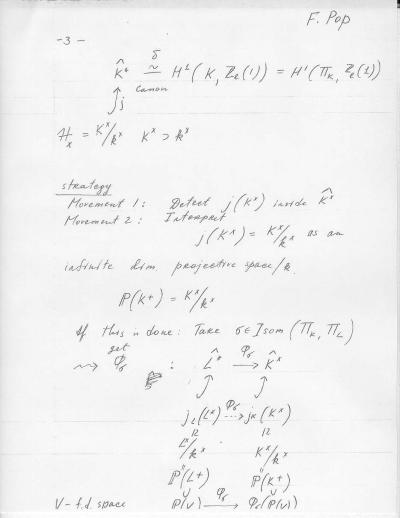 F. Pop
- 3 -
K̂ˣ ≃ H¹(K, ℤ_ℓ(1)) = H¹(Π_K, ℤ_ℓ(1))
δ
canon
↑ j
= Kˣ/kˣ Kˣ > kˣ
strategy
Movement 1: Detect j(Kˣ) inside K̂ˣ
Movement 2: Interpret
j(Kˣ) = Kˣ/kˣ as an
infinite dim. projective space/k.
ℙ(K+) = Kˣ/kˣ
If this is done: Take σ ∈ Isom(Π_K, Π_L)
get
⇝ Φ_σ : L̂ˣ —Φ_σ→ K̂ˣ
j_L(Lˣ) ⇢Φ_σ j_K(Kˣ)
Lˣ/kˣ Kˣ/kˣ
ℙ(L+) ℙ(K+)
V - f.d. space ℙ(V) —Φ_σ→ Φ_σ(ℙ(V))